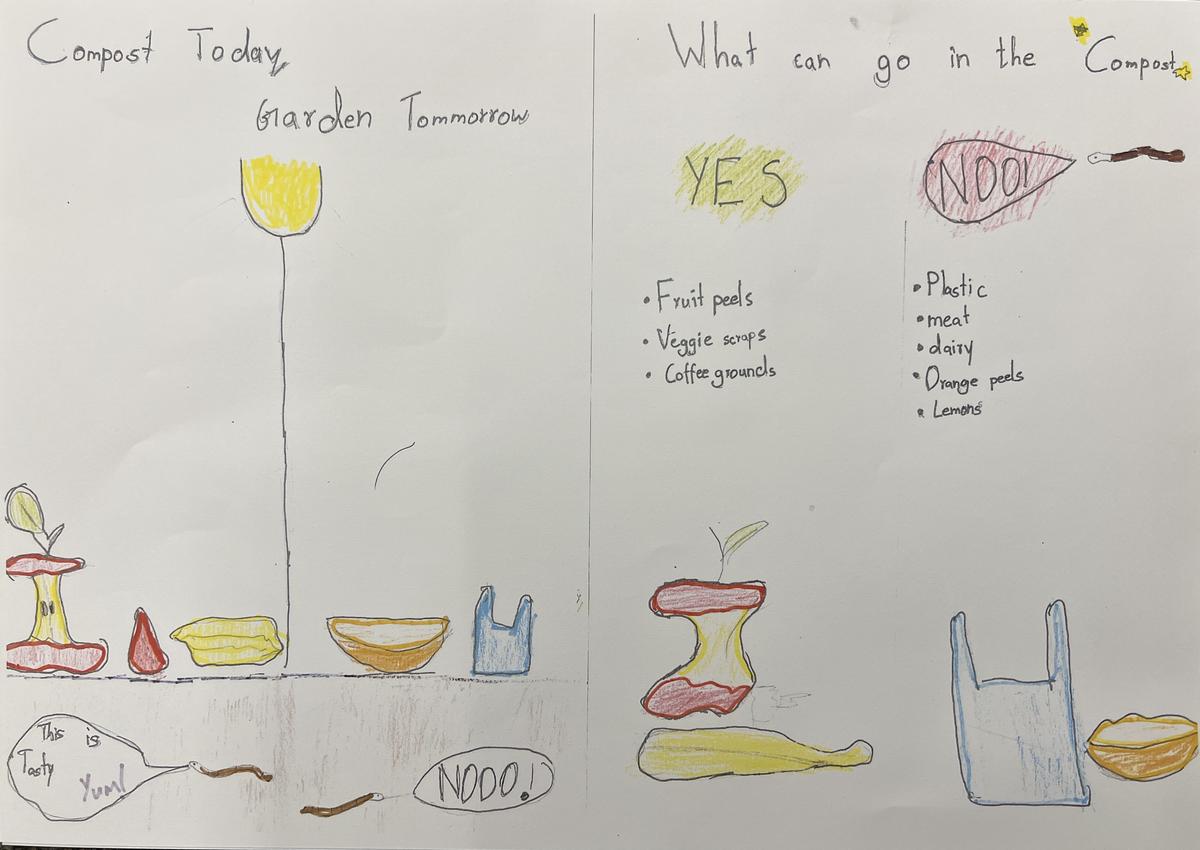 Compost Today
Garden Tommorrow
This is
Tasty
Yum!
NOOO!
What can go in the Compost
YES
• Fruit peels
• Veggie scraps
• Coffee grounds
NOO!
• Plastic
• meat
• dairy
• Orange peels
• Lemons